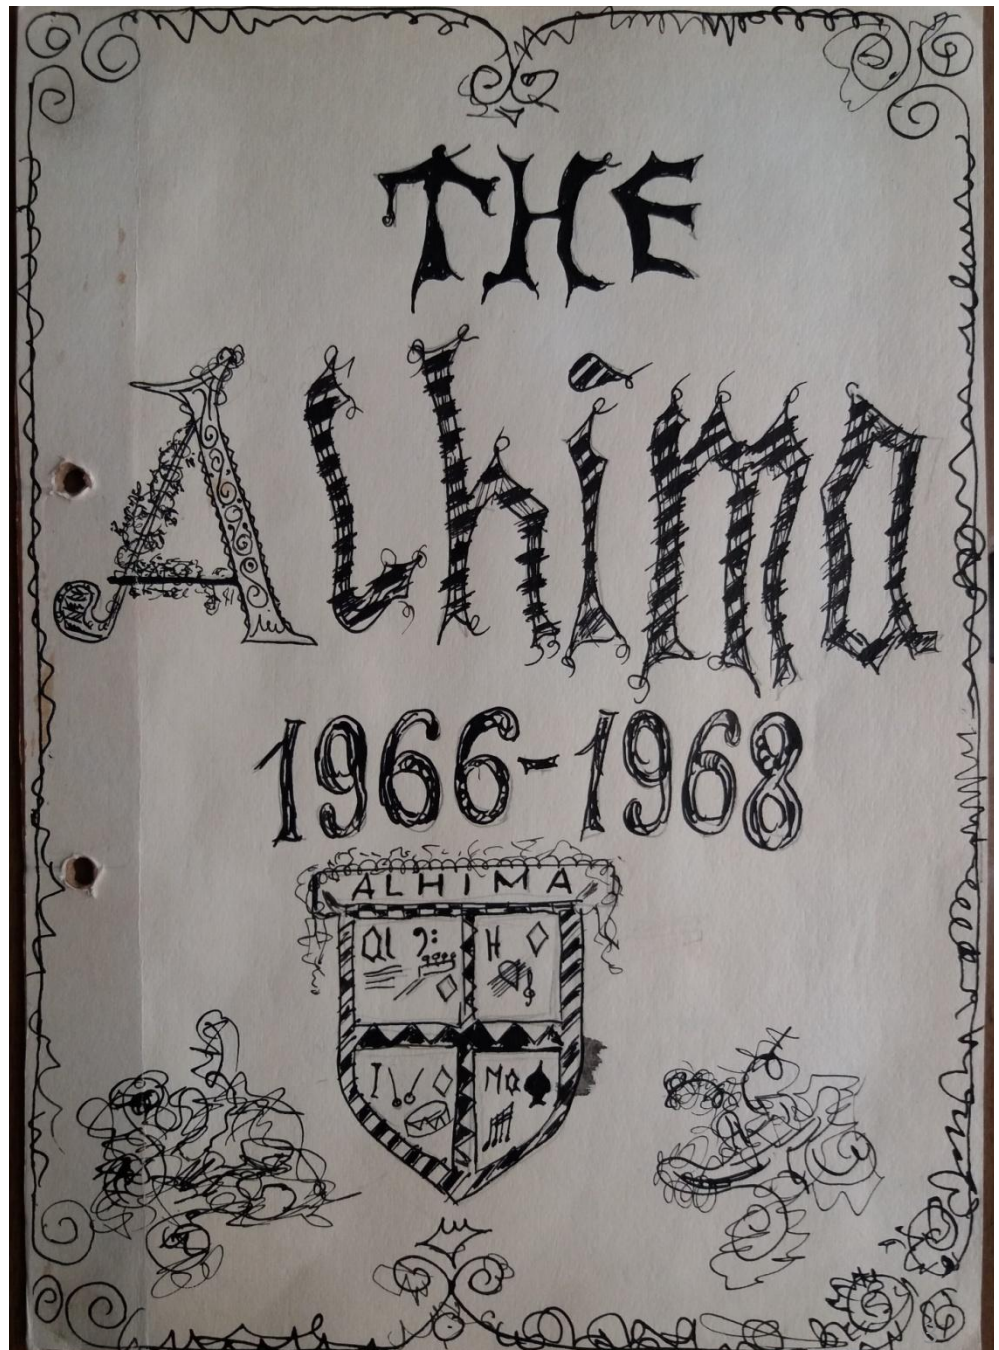 THE
Alhima
1966-1968
ALHIMA
Al
H
I
Ma